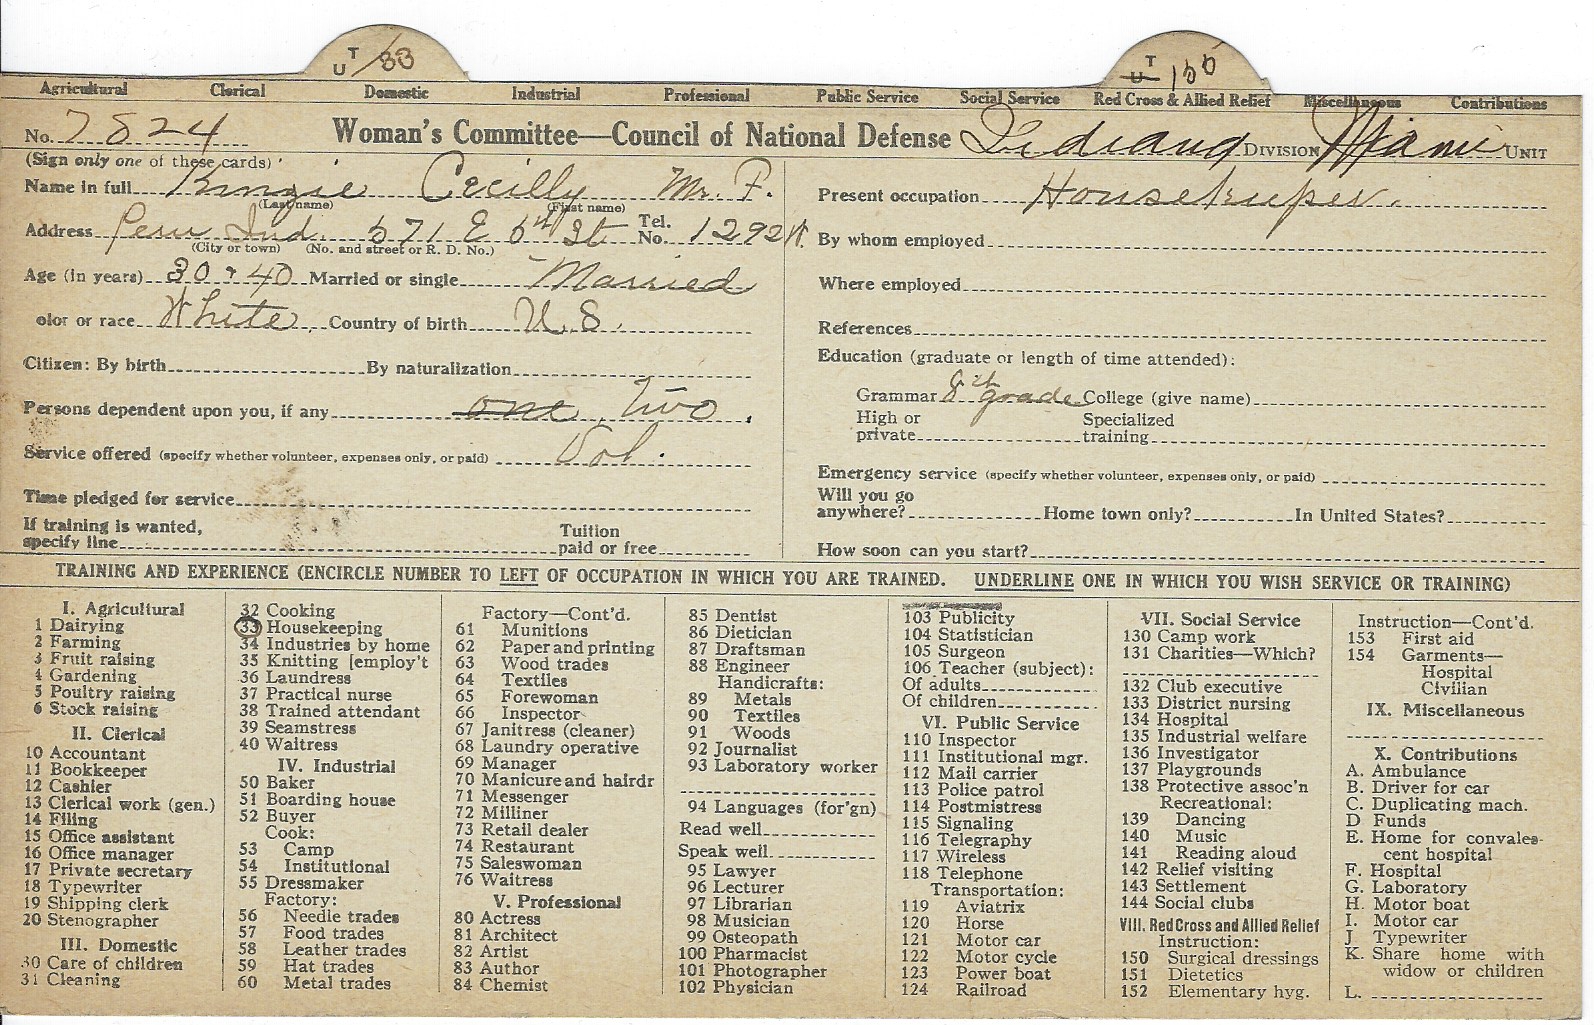 T
U /33
T
U 155
Agricultural Clerical Domestic Industrial Professional Public Service Social Service Red Cross & Allied Relief Miscellaneous Contributions
No. 7824 Woman's Committee—Council of National Defense Indiana DIVISION Miami UNIT
(Sign only one of these cards)
Name in full Kinzie Cecilly Mr. F.
(Last name) (First name)
Address Peru Ind. 571 E 6th St Tel. No. 1292
(City or town) (No. and street or R. D. No.)
Age (in years) 30 + 40 Married or single Married
olor or race White, Country of birth U.S.
Citizen: By birth By naturalization
Persons dependent upon you, if any one Two.
Service offered (specify whether volunteer, expenses only, or paid) Vol.
Time pledged for service
If training is wanted,
specify line Tuition paid or free
Present occupation Housekeeper.
By whom employed
Where employed
References
Education (graduate or length of time attended):
Grammar 8th grade College (give name)
High or private Specialized training
Emergency service (specify whether volunteer, expenses only, or paid)
Will you go
anywhere? Home town only? In United States?
How soon can you start?
TRAINING AND EXPERIENCE (ENCIRCLE NUMBER TO LEFT OF OCCUPATION IN WHICH YOU ARE TRAINED. UNDERLINE ONE IN WHICH YOU WISH SERVICE OR TRAINING)
I. Agricultural
1 Dairying
2 Farming
3 Fruit raising
4 Gardening
5 Poultry raising
6 Stock raising
II. Clerical
10 Accountant
11 Bookkeeper
12 Cashier
13 Clerical work (gen.)
14 Filing
15 Office assistant
16 Office manager
17 Private secretary
18 Typewriter
19 Shipping clerk
20 Stenographer
III. Domestic
30 Care of children
31 Cleaning
32 Cooking
33 Housekeeping
34 Industries by home
35 Knitting [employ't
36 Laundress
37 Practical nurse
38 Trained attendant
39 Seamstress
40 Waitress
IV. Industrial
50 Baker
51 Boarding house
52 Buyer
Cook:
53 Camp
54 Institutional
55 Dressmaker
Factory:
56 Needle trades
57 Food trades
58 Leather trades
59 Hat trades
60 Metal trades
Factory—Cont'd.
61 Munitions
62 Paper and printing
63 Wood trades
64 Textiles
65 Forewoman
66 Inspector
67 Janitress (cleaner)
68 Laundry operative
69 Manager
70 Manicure and hairdr
71 Messenger
72 Milliner
73 Retail dealer
74 Restaurant
75 Saleswoman
76 Waitress
V. Professional
80 Actress
81 Architect
82 Artist
83 Author
84 Chemist
85 Dentist
86 Dietician
87 Draftsman
88 Engineer
Handicrafts:
89 Metals
90 Textiles
91 Woods
92 Journalist
93 Laboratory worker
94 Languages (for'gn)
Read well
Speak well
95 Lawyer
96 Lecturer
97 Librarian
98 Musician
99 Osteopath
100 Pharmacist
101 Photographer
102 Physician
103 Publicity
104 Statistician
105 Surgeon
106 Teacher (subject):
Of adults
Of children
VI. Public Service
110 Inspector
111 Institutional mgr.
112 Mail carrier
113 Police patrol
114 Postmistress
115 Signaling
116 Telegraphy
117 Wireless
118 Telephone
Transportation:
119 Aviatrix
120 Horse
121 Motor car
122 Motor cycle
123 Power boat
124 Railroad
VII. Social Service
130 Camp work
131 Charities—Which?
132 Club executive
133 District nursing
134 Hospital
135 Industrial welfare
136 Investigator
137 Playgrounds
138 Protective assoc'n
Recreational:
139 Dancing
140 Music
141 Reading aloud
142 Relief visiting
143 Settlement
144 Social clubs
VIII. Red Cross and Allied Relief
Instruction:
150 Surgical dressings
151 Dietetics
152 Elementary hyg.
Instruction—Cont'd.
153 First aid
154 Garments—
Hospital
Civilian
IX. Miscellaneous
X. Contributions
A. Ambulance
B. Driver for car
C. Duplicating mach.
D Funds
E. Home for convales-
cent hospital
F. Hospital
G. Laboratory
H. Motor boat
I. Motor car
J Typewriter
K. Share home with
widow or children
L.